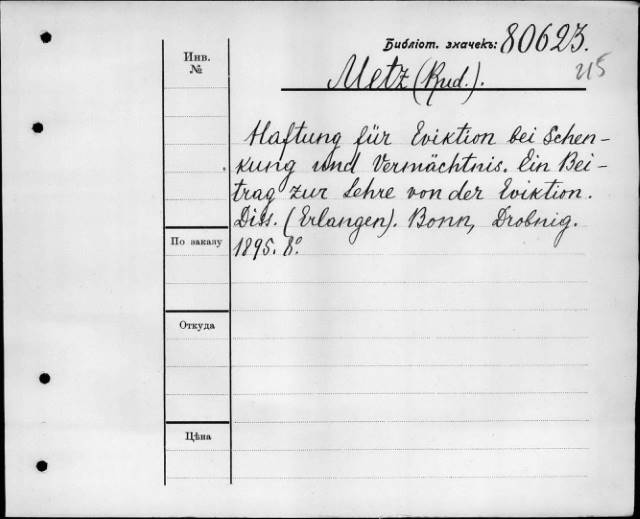 Библіот. значекъ: 80623.
215
Metz (Rud.).
Инв.
№
Haftung für Eviktion bei Schen-
kung und Vermächtnis. Ein Bei-
trag zur Lehre von der Eviktion.
Diss. (Erlangen). Bonn, Drobnig.
1895. 8º.
По заказу
Откуда
Цѣна